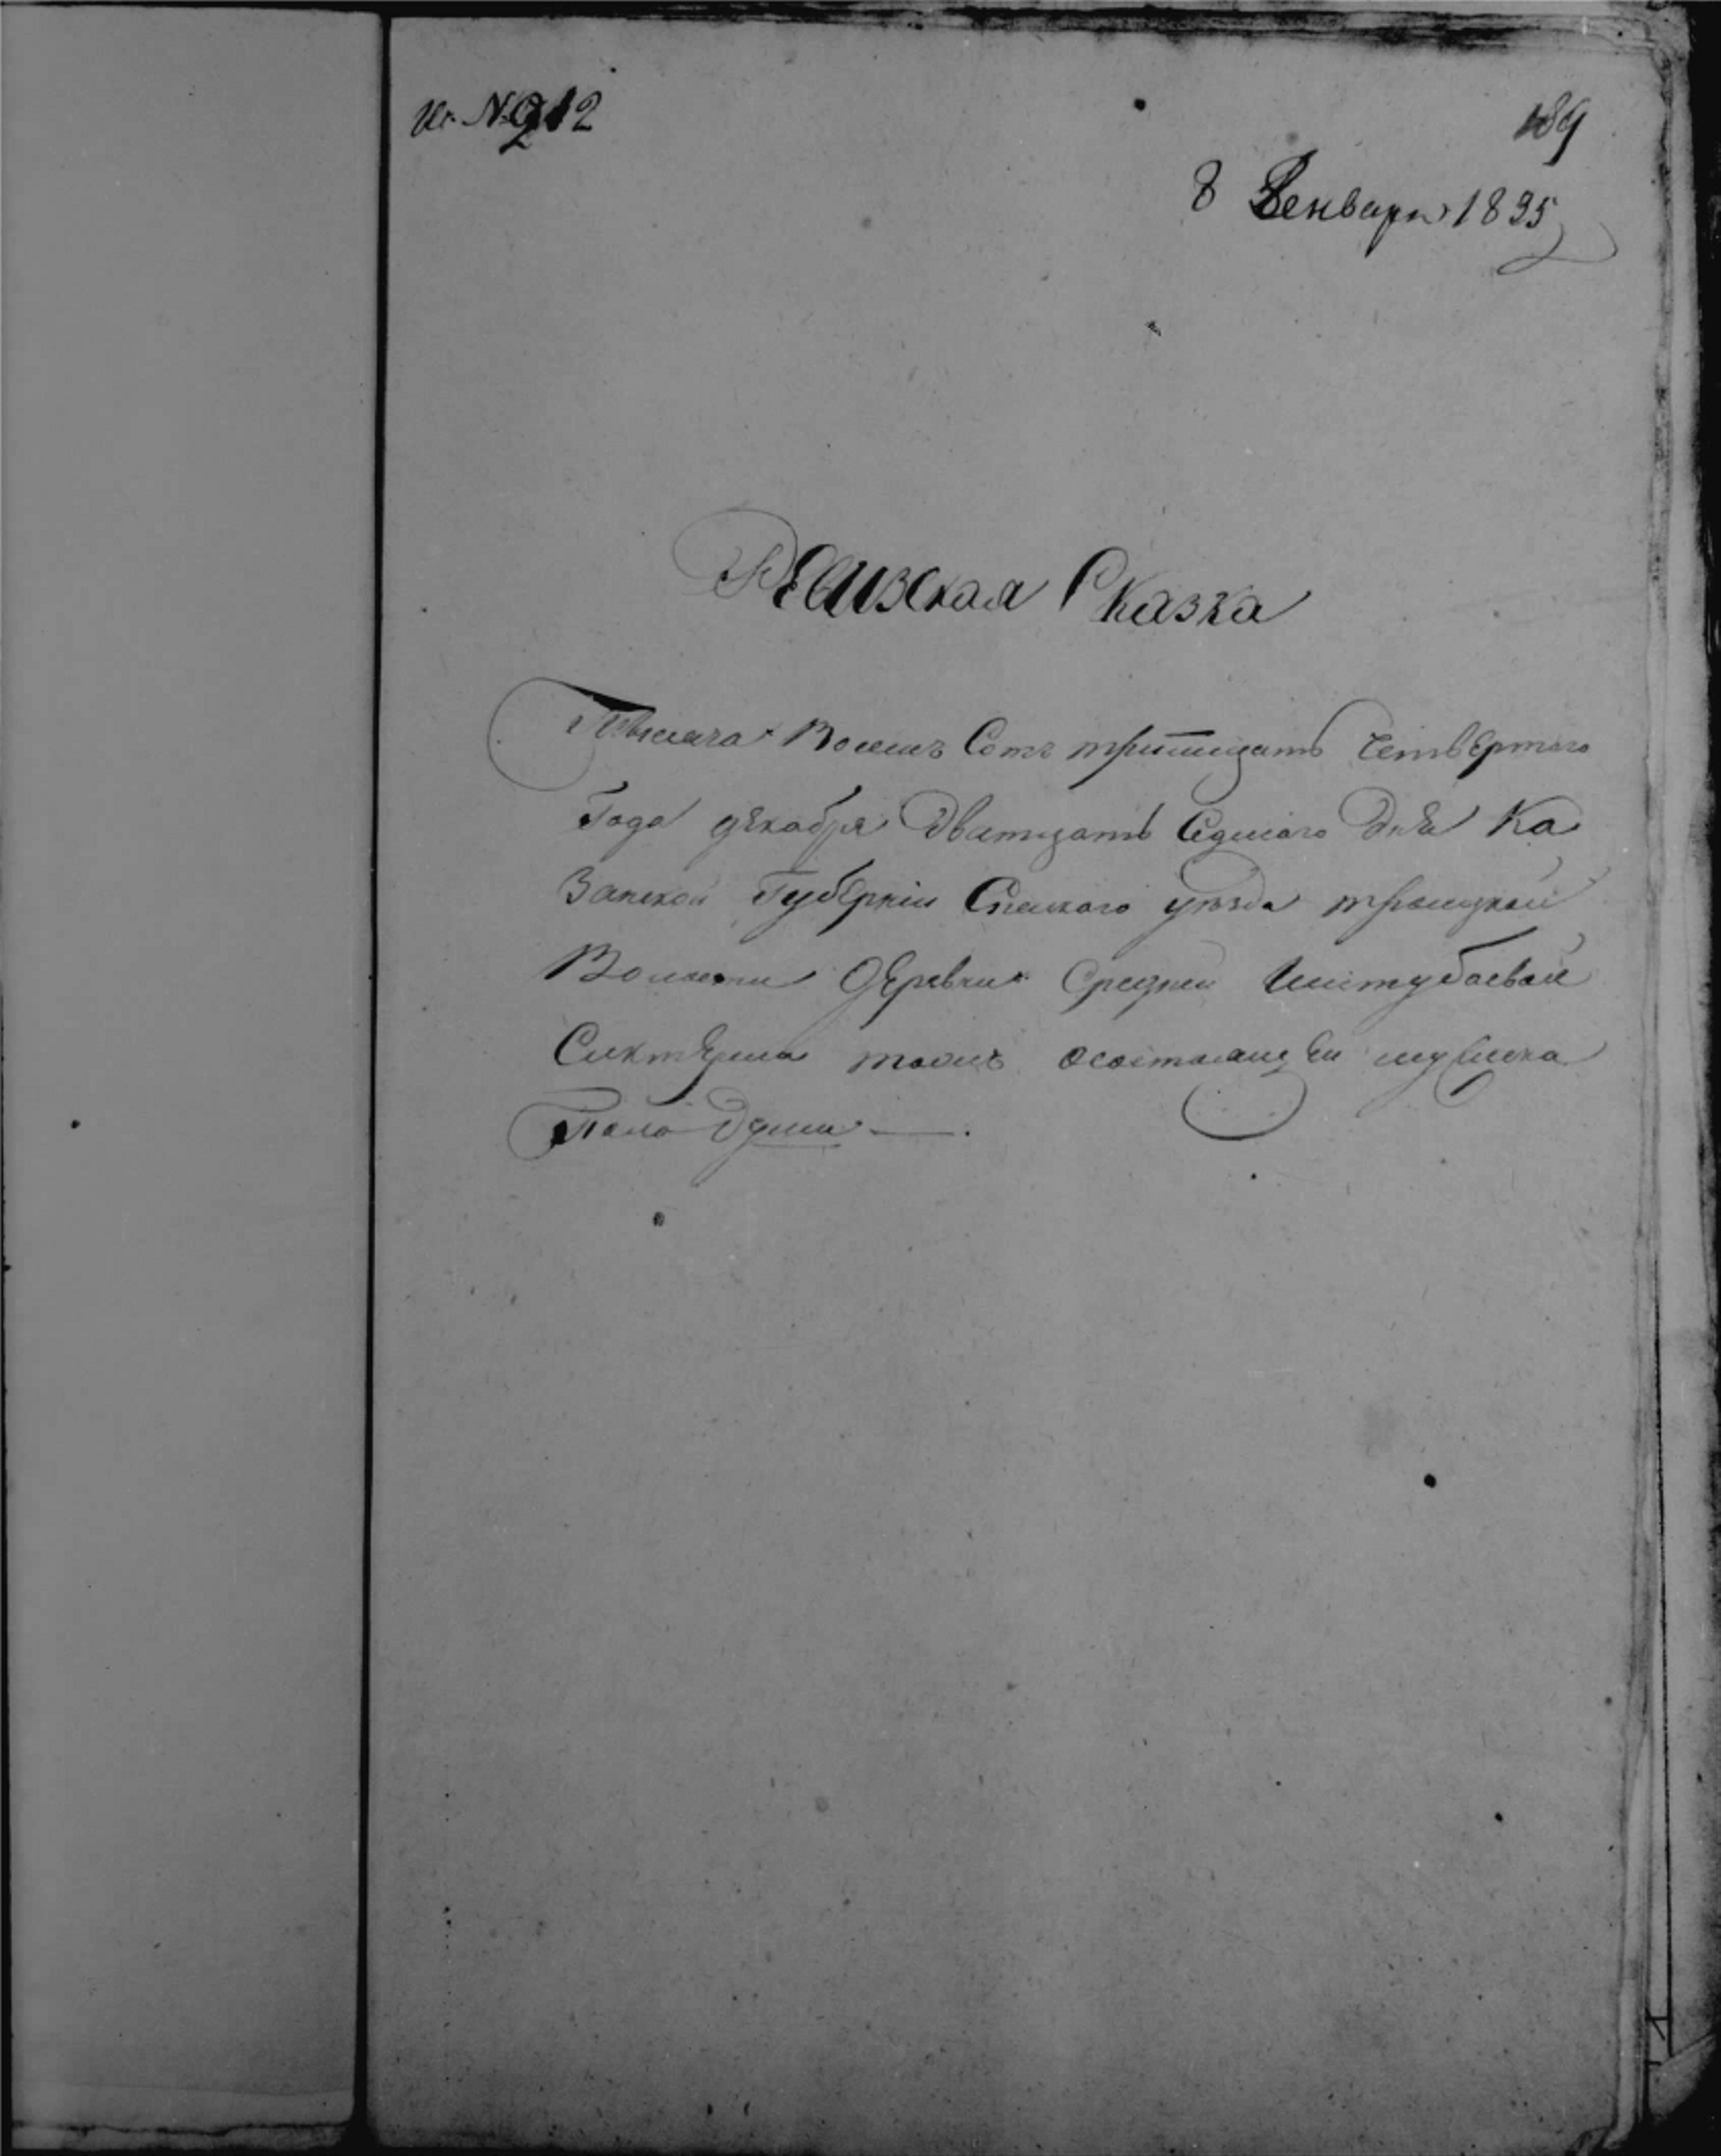 № 212
189
8 Генваря 1835
Ревизская Сказка
Тысяча Восемь Сотъ тритцать Четвертого
Года декабря Дватцать Седмаго Дня Ка
Занской Губерніи Спаского уѣзда трыцкой
Волости Деревни Средней Иштубаевой
Сиктерма тожъ осостоящеи мужеска
Пола Души —.